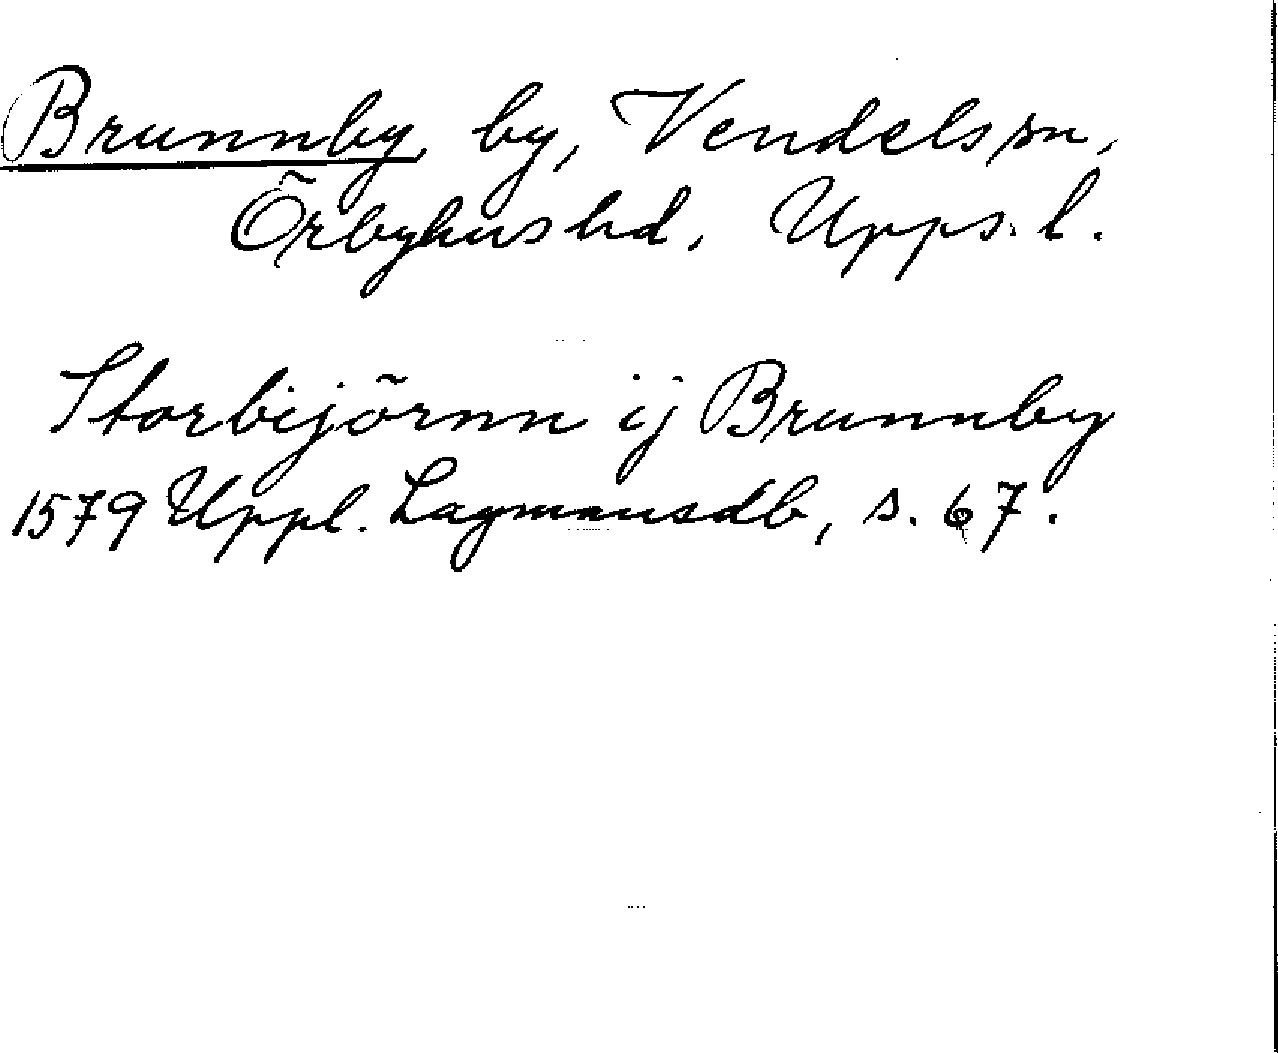 Brunnby, by, Vendels sn,
Örbyhus hd, Upps. l.
Storbijörnn ij Brunnby
1579 Uppl. Lagmansdb, s. 67.